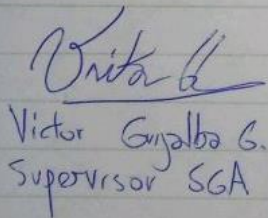 Victor G
Victor Grijalba G.
Supervisor SGA